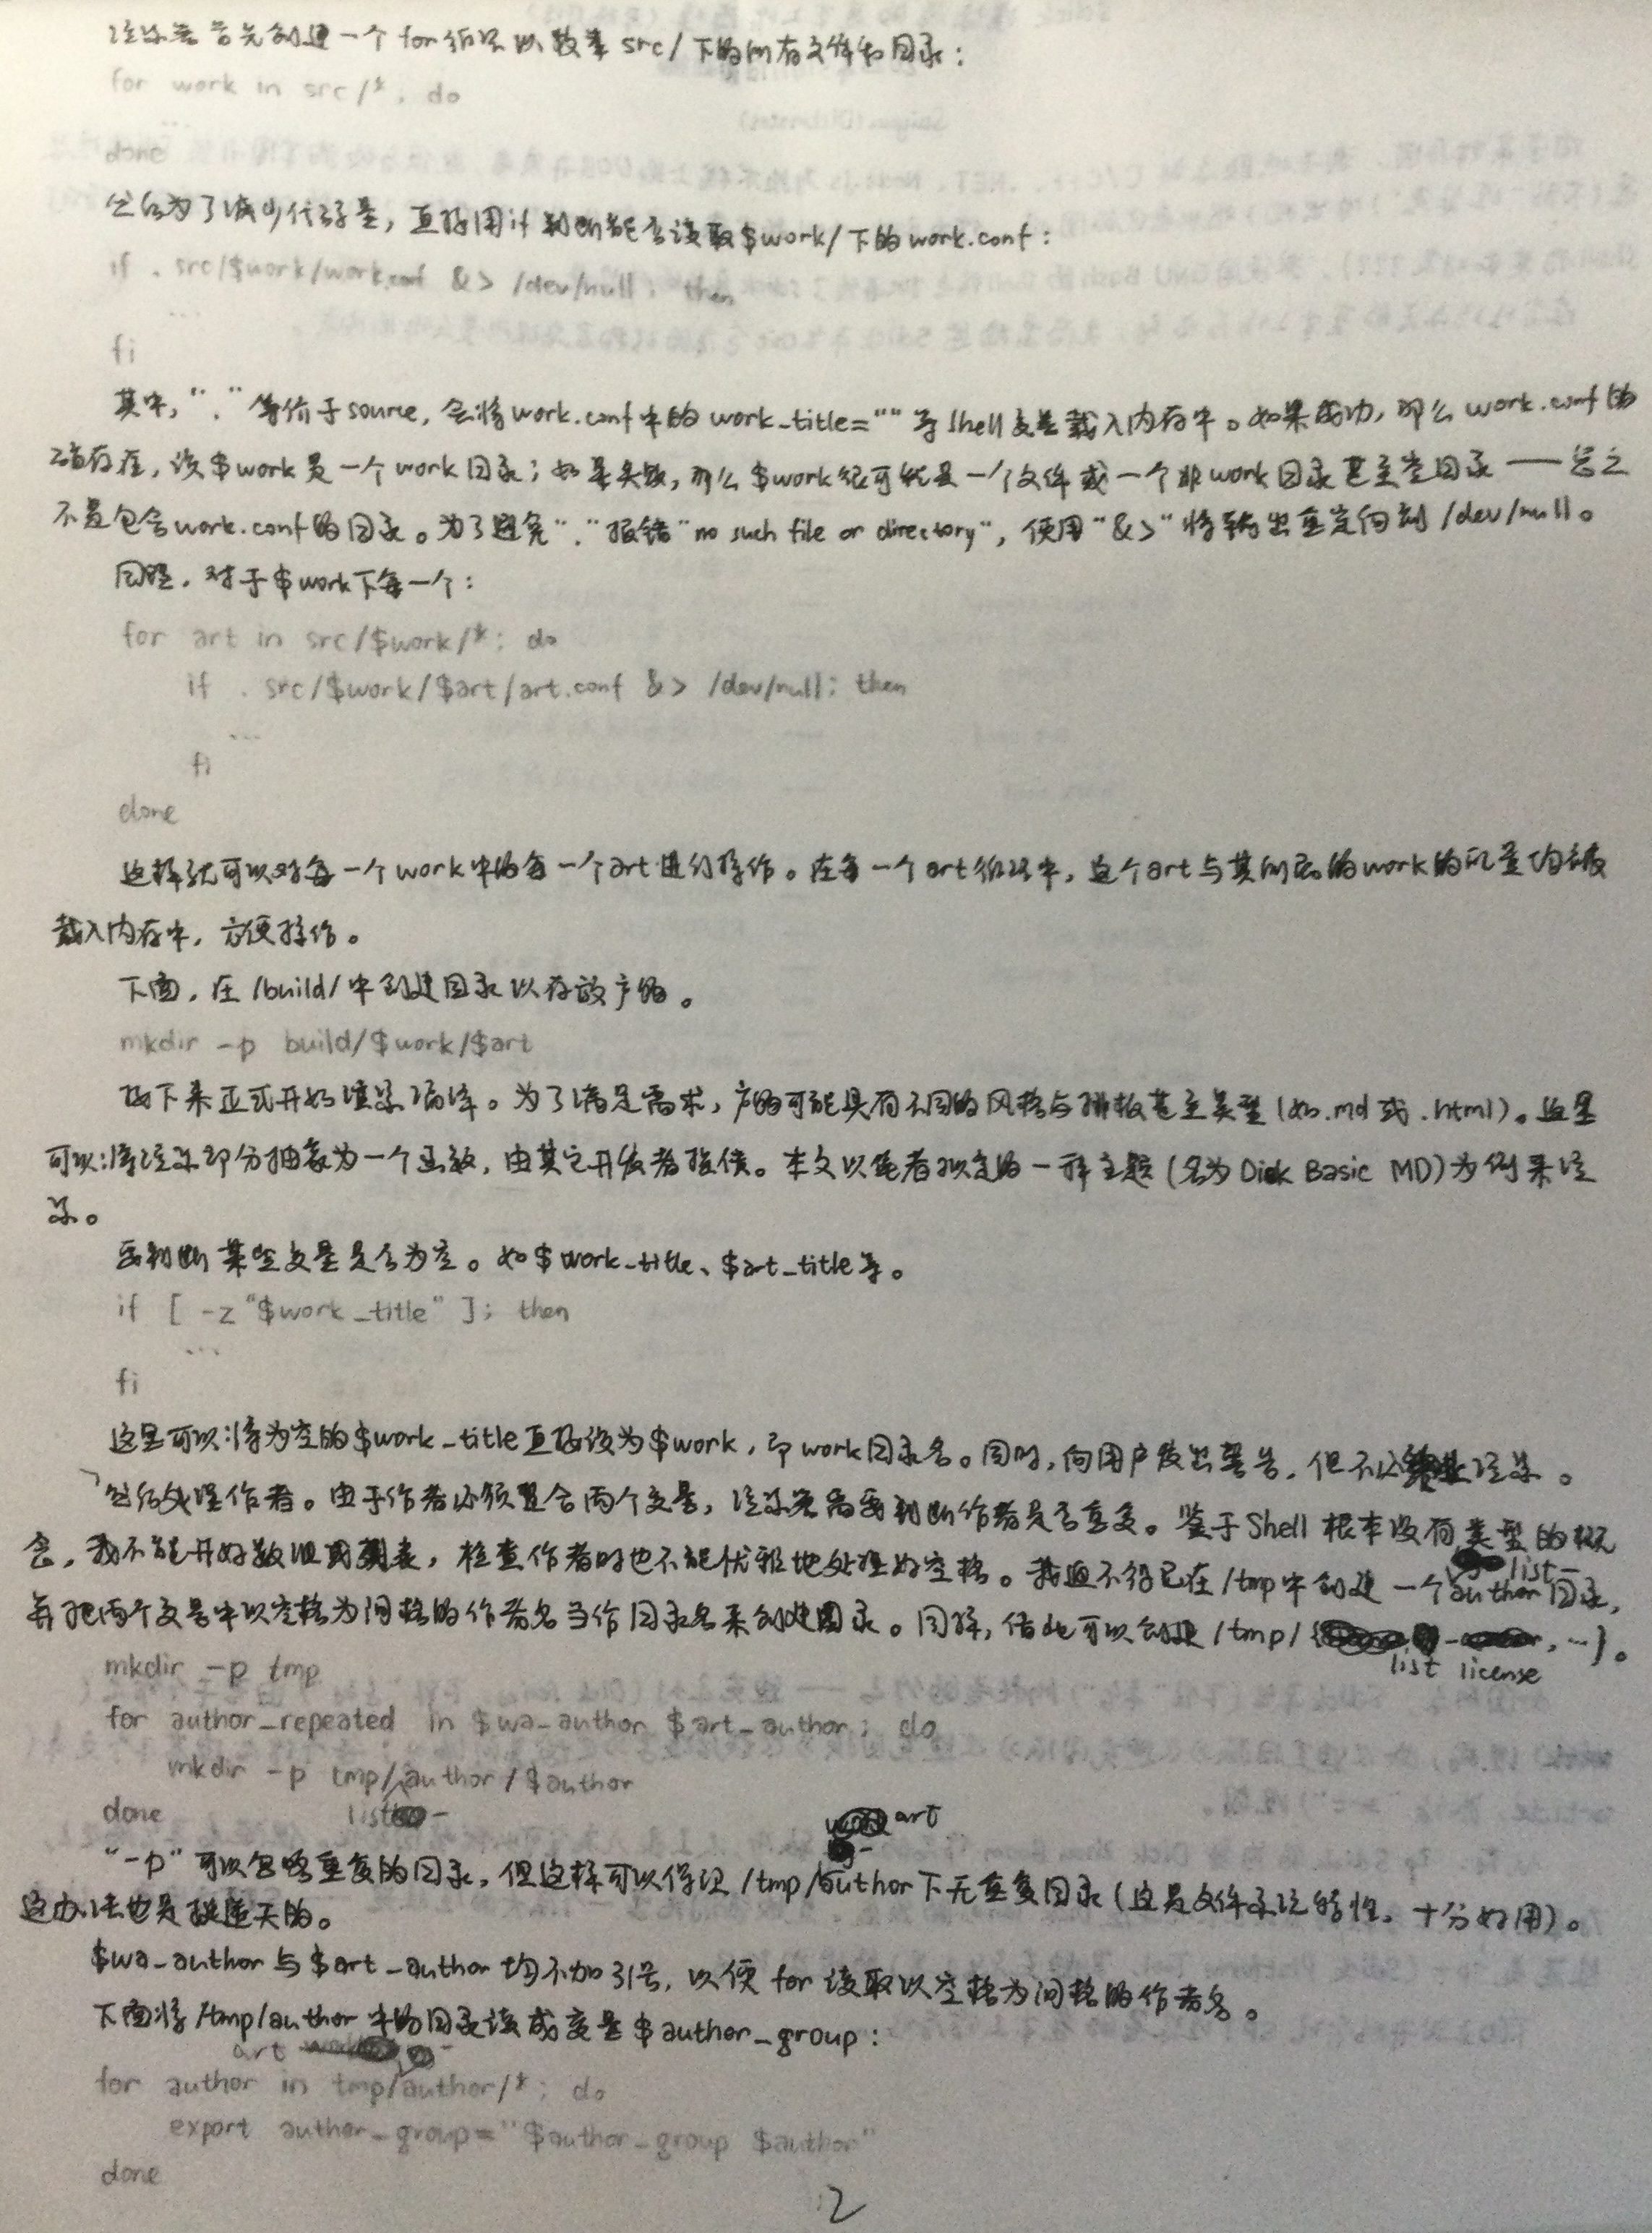 渲染器首先创建一个for循环以收集src/下的所有文件和目录：
for work in src/*; do
...
done
然后为了减少代码量，直接用if判断能否读取$work/下的work.conf：
if . src/$work/work.conf &> /dev/null; then
...
fi
其中，“.”等价于source，会将work.conf中的work_title=""等Shell变量载入内存中。如果成功，那么work.conf的
确存在，该$work是一个work目录；如果失败，那么$work很可能是一个文件或一个非work目录甚至空目录——总之
不是包含work.conf的目录。为了避免“.”报错“no such file or directory”，使用“&>”将输出重定向到/dev/null。
同理，对于$work下每一个：
for art in src/$work/*; do
if . src/$work/$art/art.conf &> /dev/null; then
...
fi
done
这样就可以对每一个work中的每一个art进行操作。在每一个art循环中，这个art与其所属的work的配置均被
载入内存中，方便操作。
下面，在/build/中创建目录以存放产物。
mkdir -p build/$work/$art
接下来正式开始渲染编译。为了满足需求，产物可能具有不同的风格与排版甚至类型（如.md或.html）。这里
可以将渲染部分抽象为一个函数，由其它开发者提供。本文以笔者拟定的一种主题（名为Disk Basic MD）为例来渲
染。
要判断某些变量是否为空。如$work_title、$art_title等。
if [ -z "$work_title" ]; then
...
fi
这里可以将为空的$work_title直接设为$work，即work目录名。同时，向用户发出警告，但不必终止渲染。
然后处理作者。由于作者必须整合两个变量，渲染器需要判断作者是否重复。鉴于Shell根本没有类型的概
念，我不能开好数组或列表，检查作者时也不能优雅地处理好空格。我迫不得已在/tmp中创建一个list-author目录，
并把两个变量中以空格为间格的作者名当作目录名来创建目录。同样，借此可以创建/tmp/{list-license,…}。
mkdir -p tmp
for author_repeated in $wa_author $art_author; do
mkdir -p tmp/list-author/$author
done
“-p”可以忽略重复的目录，但这样可以保证/tmp/art-author下无重复目录（这是文件系统特性，十分好用）。
这办法也是挺逆天的。
$wa_author与$art_author均不加引号，以便for读取以空格为间格的作者名。
下面将/tmp/author中的目录读成变量$author_group：
for author in tmp/art-author/*; do
export author_group="$author_group $author"
done
2